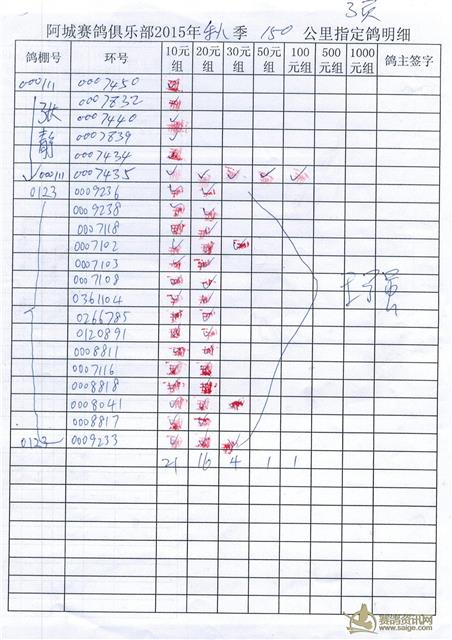 3页
阿城赛鸽俱乐部2015年秋季 150 公里指定鸽明细
鸽棚号 环号 10元组 20元组 30元组 50元组 100元组 500元组 1000元组 鸽主签字
000111 0007450
张 0007832
0007440
静 0007839
0007434
000111 0007435
0123 0009236
0009238
0007118
0007102
0007103
0007108
0361104
0266785
0120891
0008811
0007116
0008818
0008041
0008817
0123 0009233
21 16 4 1 1
赛鸽资讯网
www.saige.com